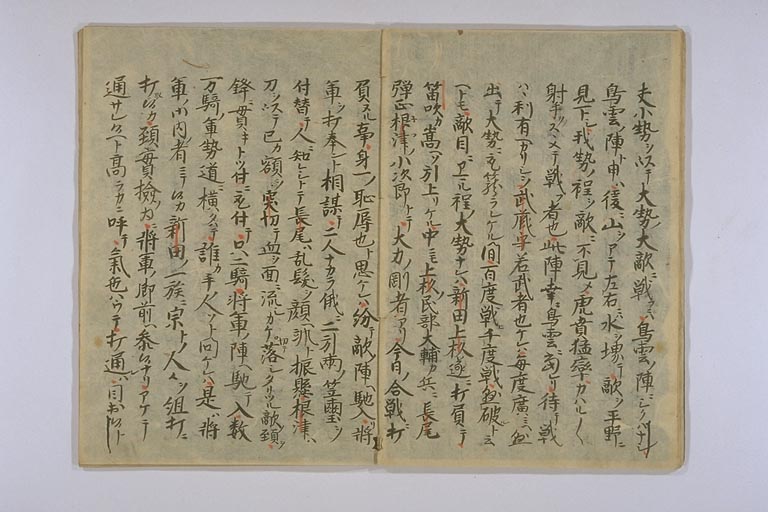 夫小勢ヲ以テ大勢ノ大敵ニ戦フハ鳥雲ノ陣ニシクハナシ
鳥雲ノ陣ト申ハ後ニ山ヲアテ左右ニ水ヲ境テ敵ヲ平野ニ
見下シ我勢ノ程ヲ敵ニ不見メ虎賁猛卒カハル〱
射手ヲスヽメテ戦フ者也此陣幸ニ鳥雲ニ当レリ待テ戦
ハ利有ヘカリシヲ武蔵守若武者也ケレハ毎度廣ミニ
出テ大勢ニ取篭ラレケル間百度戦千度懸破ルト云
ヘトモ敵目ニ余ル程ノ大勢ナレハ新田上杉遂ニ打負テ
笛吹カ嵩ヘソ引上リケル中ニモ上杉民部大輔カ兵ニ長尾
弾正根津小次郎トテ大力ノ剛者アリ今日ノ合戦ニ打
負ヌル事身一ノ恥辱也ト思ケレハ紛テ敵ノ陣ヘ馳入将
軍ヲ打奉ント相謀テ二人ナカラ俄ニ二引両ノ笠璽ヲ
付替テ人ニ知レシトテ長尾ハ乱髪ヲ顔ヘ振懸根津ハ
刀ヲ以テ己カ額ヲ突切テ血ヲ面ニ流シカケ切テ落シタリツル敵ノ頚
鋒ニ貫キトツ付ニ取付テ只二騎将軍ノ陣ヘ馳テ入数
万騎ノ軍勢道ニ横タハテ誰カ手ノ人ソト問ケレハ是ハ将
軍ノ御内ノ者ニテ候カ新田ノ一族ニ宗トノ人々ヲ組打ニ
打テ候カ頚實檢ノ為ニ将軍ノ御前ヘ参候ナリアケテ
通サレ候ヘト高ラカニ呼テ氣色ハウテ打通レハ目出候ト